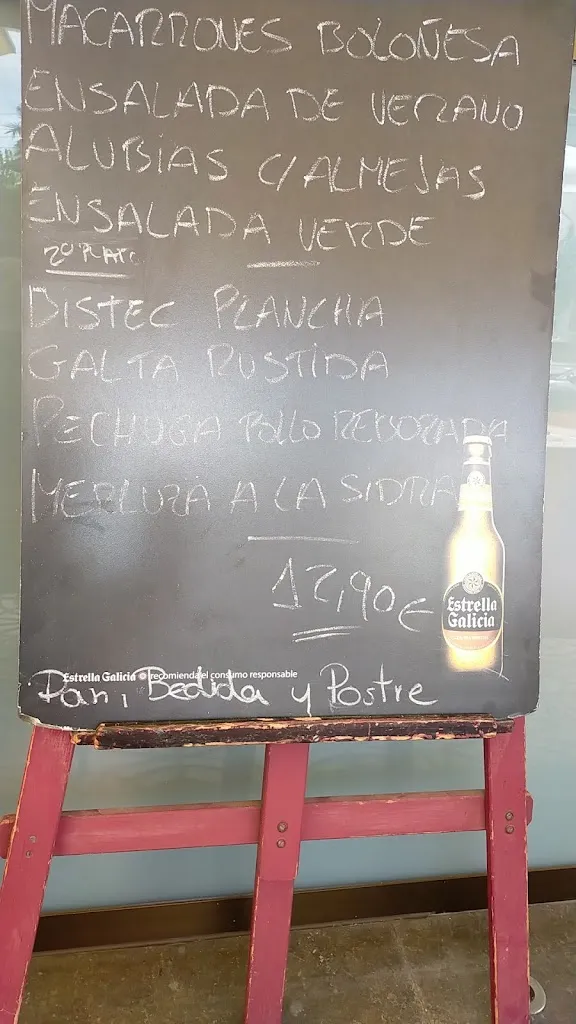 MACARRONES BOLOÑESA
ENSALADA DE VERANO
ALUBIAS C/ ALMEJAS
ENSALADA VERDE
2º PLATO
BISTEC PLANCHA
GALTA RUSTIDA
PECHUGA POLLO REBOZADA
MERLUZA A LA SIDRA
12,90€
Estrella
Galicia
Estrella Galicia recomienda el consumo responsable
Pan, Bedida y Postre